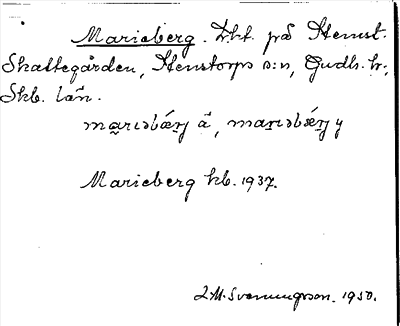 Marieberg. Lht. på Stenst.
Skattegården, Stenstorps s:n, Gudh. hr.,
Skb. län.
ma̱rɩəbǽrj ä, marɩəbǽrj y
Marieberg kb. 1937.
L.M. Svenungsson. 1950.